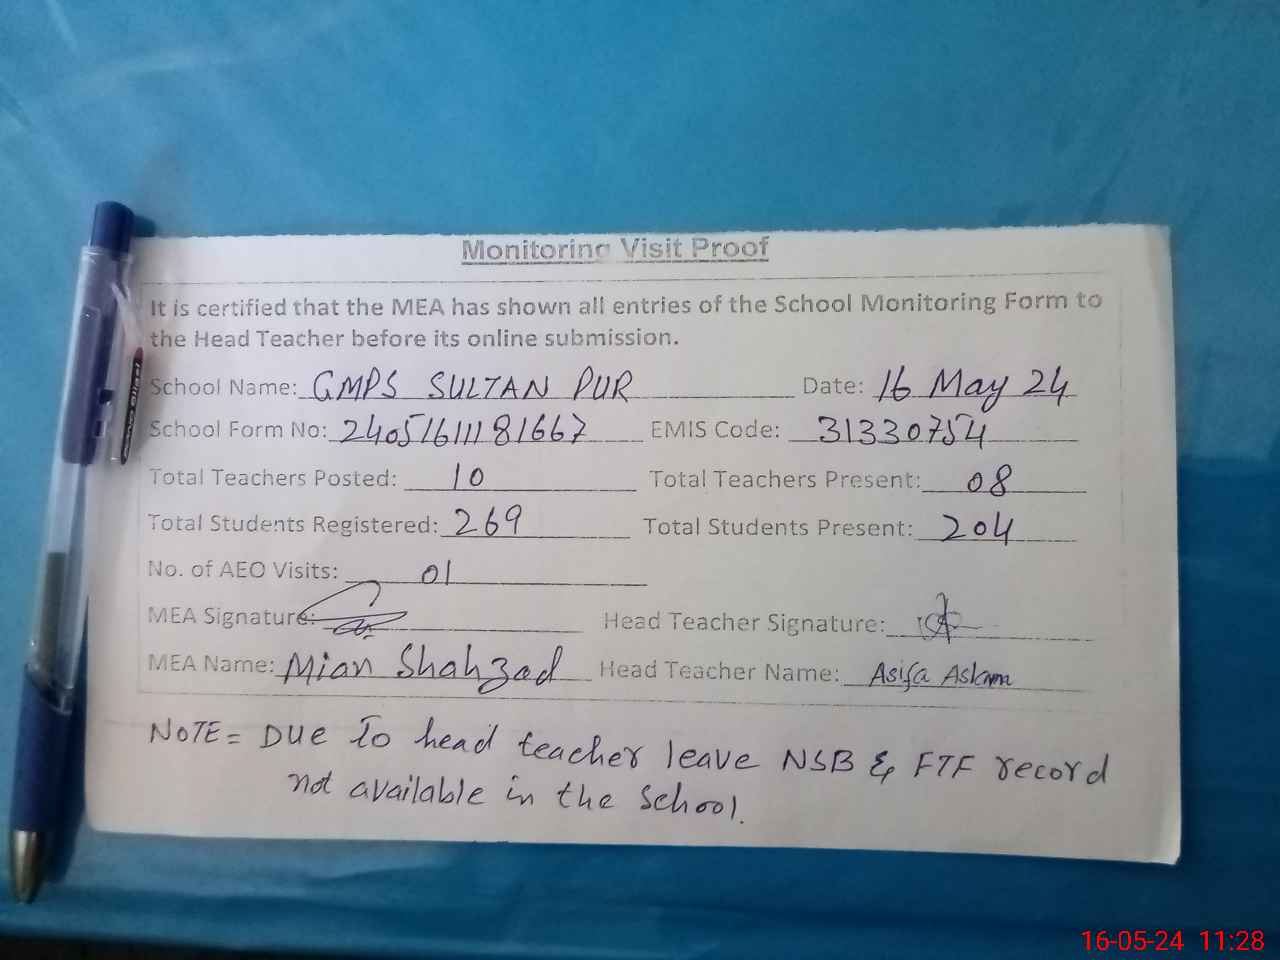 Monitoring Visit Proof
It is certified that the MEA has shown all entries of the School Monitoring Form to
the Head Teacher before its online submission.
School Name: GMPS SULTAN PUR Date: 16 May 24
School Form No: 24051611181667 EMIS Code: 31330754
Total Teachers Posted: 10 Total Teachers Present: 08
Total Students Registered: 269 Total Students Present: 204
No. of AEO Visits: 01
MEA Signature: Head Teacher Signature:
MEA Name: Mian Shahzad Head Teacher Name: Asifa Aslam
NOTE = DUE To head teacher leave NSB & FTF record
not available in the school.
16-05-24 11:28